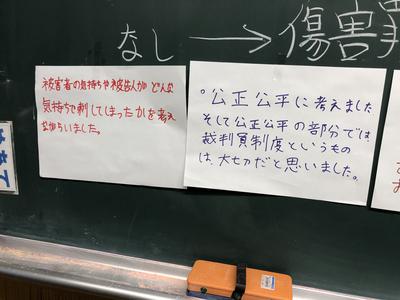 なし → 傷害罪
被害者の気持ちや被告人がどんな
気持ちで刺してしまったかを考え
ながらいました。
。公正公平に考えました
そして公正公平の部分では、
裁判員制度というもの
は、大切だと思いました。